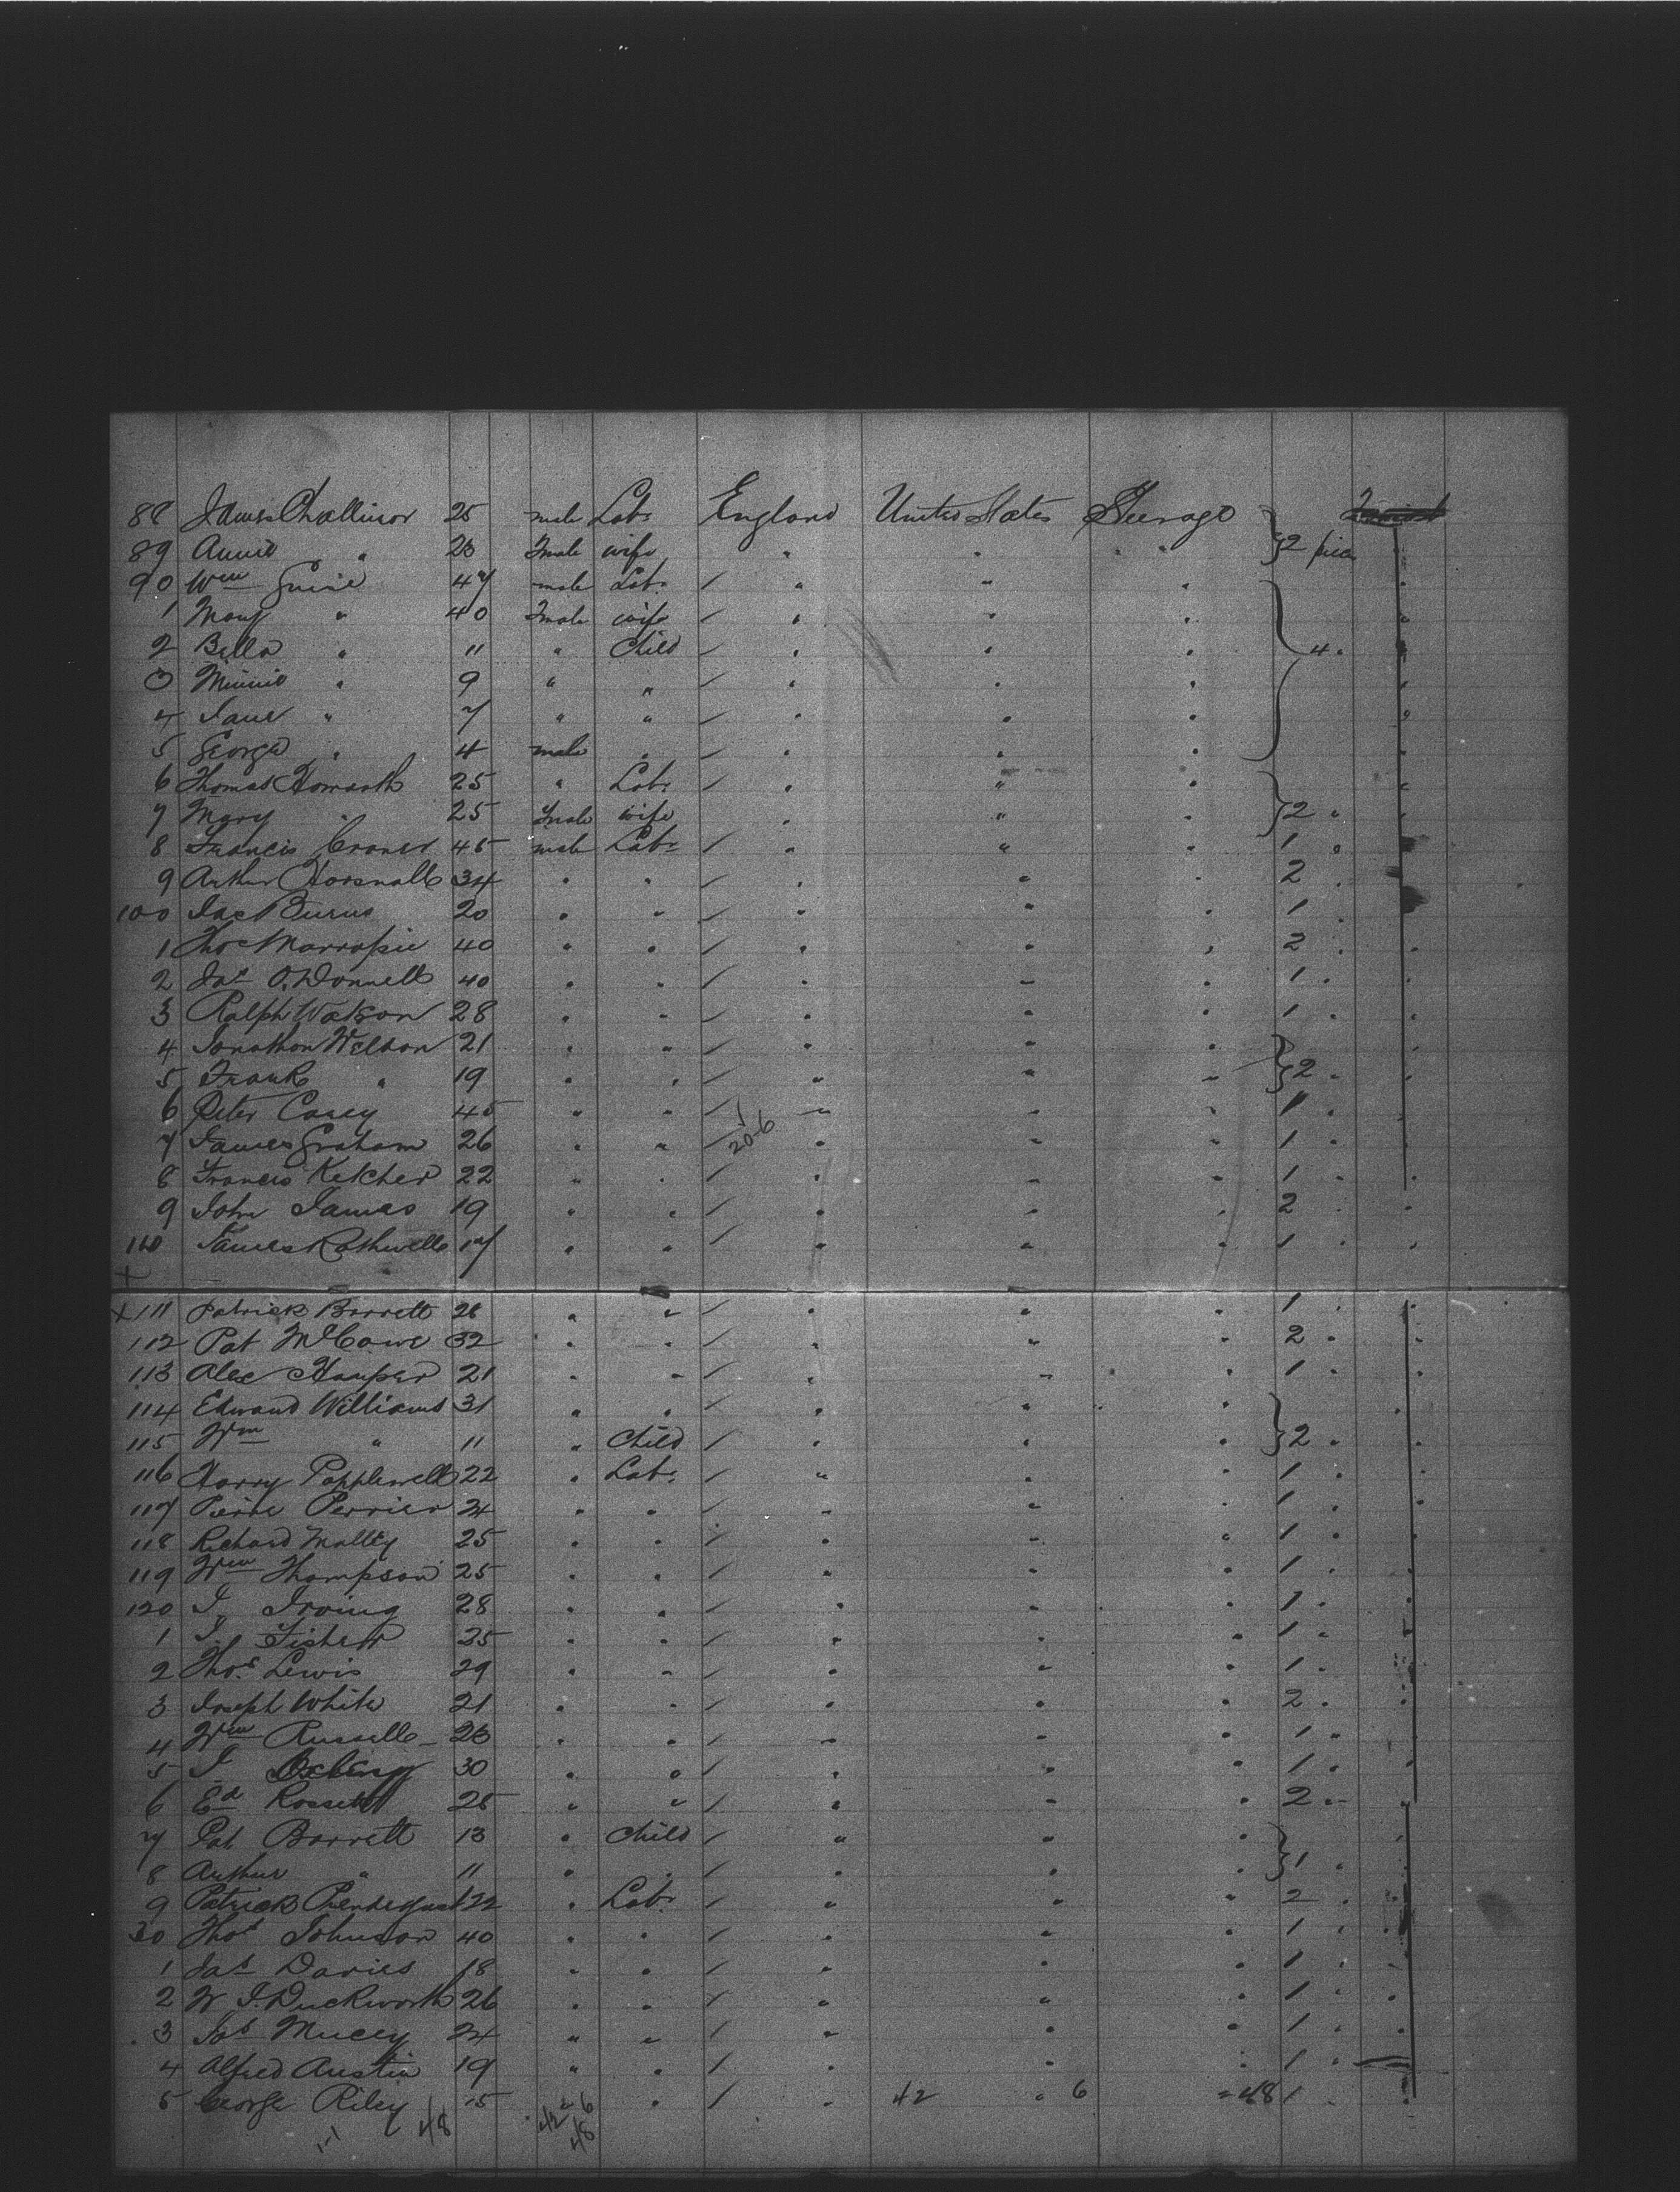 88 James Challinor 25 male Labr England United States Steerage
89 Annie " 23 Fmale wife " " " } 2 pies
90 Wm 47 male Labr / " " "
1 Mary " 40 Fmale wife / " " "
2 Bella " 11 " Child / " " " } 4 "
3 Minnie " 9 " " / " " "
4 Jane " 7 " " / " " "
5 George " 4 male " / " " "
6 Thomas Howarth 25 " Labr / " " "
7 Mary " 25 Fmale wife " " " } 2 "
8 Francis 45 male Labr / " " " 1 "
9 Arthur Horsnall 34 " " / " " " 2 "
100 Jas Burns 20 " " / " " " 1 "
1 Thos 40 " " / " " " 2 "
2 Jas O'Donnell 40 " " / " " " 1 "
3 Ralph Watson 28 " " / " " " 1 "
4 Jonathon Welson 21 " " / " " "
5 Frank " 19 " " / " " " } 2 "
6 Peter Casey 45 " " / " " " 1 "
7 James Graham 26 " " / 20-6 " " " 1 "
8 Francis Kelcher 22 " " / " " " 1 "
9 John James 19 " " / " " " 2 "
110 James Rothwell 17 " " / " " " 1 "
+
X 111 Patrick Barrett 28 " " / " " " 1 "
112 Pat McCawe 32 " " / " " " 2 "
113 Alex Hamper 21 " " / " " " 1 "
114 Edward Williams 31 " " / " " "
115 Wm " 11 " Child / " " " } 2 "
116 Harry Popplewell 22 " Labr / " " " 1 "
117 Pierre Perrier 24 " " / " " " 1 "
118 Richard Malley 25 " " / " " " 1 "
119 Wm Thompson 25 " " / " " " 1 "
120 J. Irving 28 " " / " " " 1 "
1 J. Fisher 25 " " / " " " 1 "
2 Thos Lewis 29 " " / " " " 1 "
3 Joseph White 21 " " / " " " 2 "
4 Wm Russell 23 " " / " " " 1 "
5 J 30 " " / " " " 1 "
6 Ed 25 " " / " " " 2 "
7 Pat Barrett 13 " Child / " " "
8 Arthur " 11 " " / " " " } 1 "
9 Patrick 22 " Labr / " " " 2 "
30 Thos Johnson 40 " " / " " " 1 "
1 Jas Davies 18 " " / " " " 1 "
2 W J. Duckworth 26 " " / " " " 1 "
3 Jas Mucey 24 " " / " " " 1 "
4 Alfred Austin 19 " " / " " " 1 "
5 George Riley 15 " / " 42 " 6 = 48 1 "
1-1 48 42 - 6
48